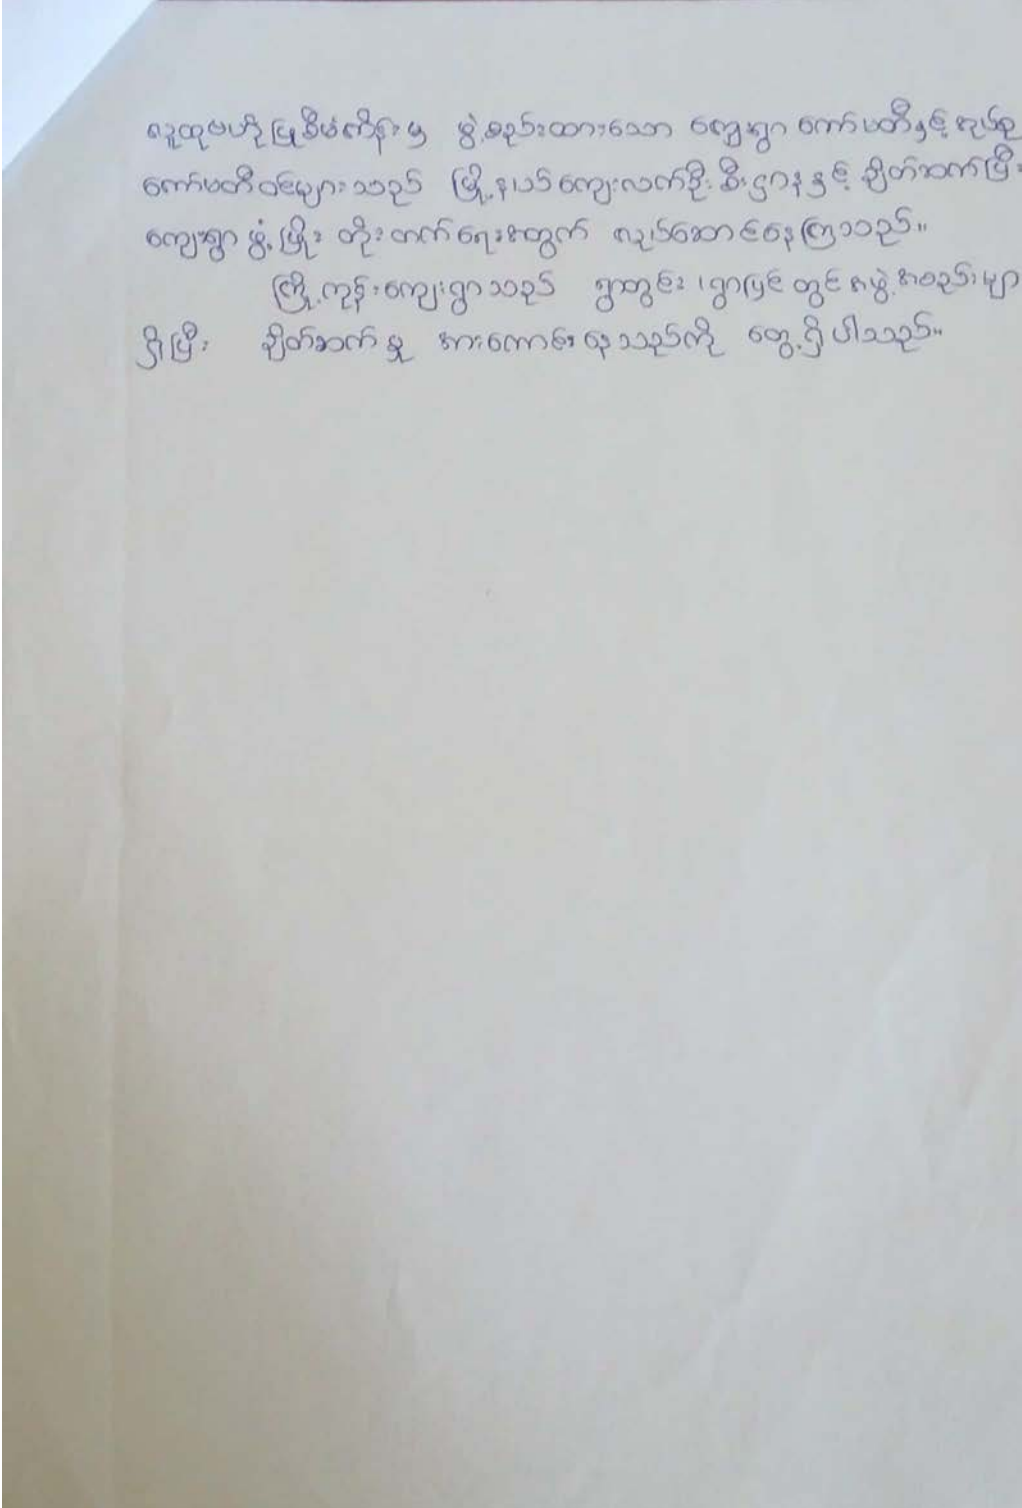 လူထုဗဟိုပြုစီမံကိန်းမှ ဖွဲ့စည်းထားသော ကျေးရွာ ကော်မတီနှင့် အုပ်စု
ကော်မတီဝင်များသည် မြို့နယ်ကျေးလက်ဦးစီးဌာနနှင့် ချိတ်ဆက်ပြီး
ကျေးရွာ ဖွံ့ဖြိုး တိုးတက်ရေးအတွက် လုပ်ဆောင်နေကြသည်။
ကြို့ကုန်းကျေးရွာသည် ရွာတွင်း၊ ရွာပြင်တွင် အဖွဲ့အစည်းများ
ရှိပြီး ချိတ်ဆက်မှု အားကောင်းနေသည်ကို တွေ့ရှိပါသည်။